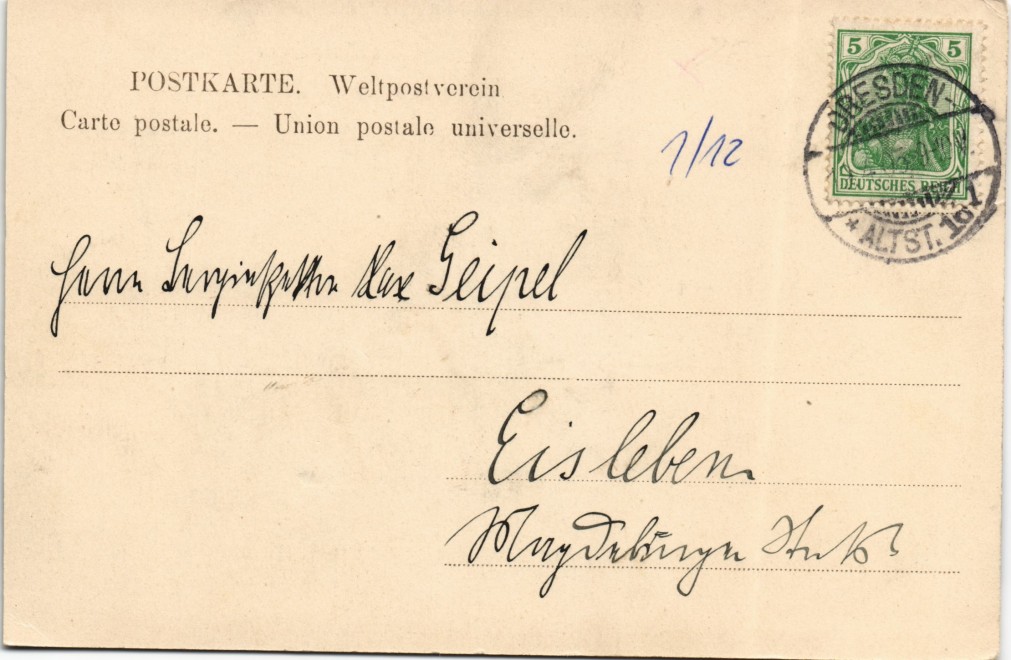 POSTKARTE. Weltpostverein
Carte postale. — Union postale universelle.
1/12
5 5
DEUTSCHES REICH
DRESDEN-
* ALTST. 16
Herrn Max Geipel
Eisleben
Magdeburger